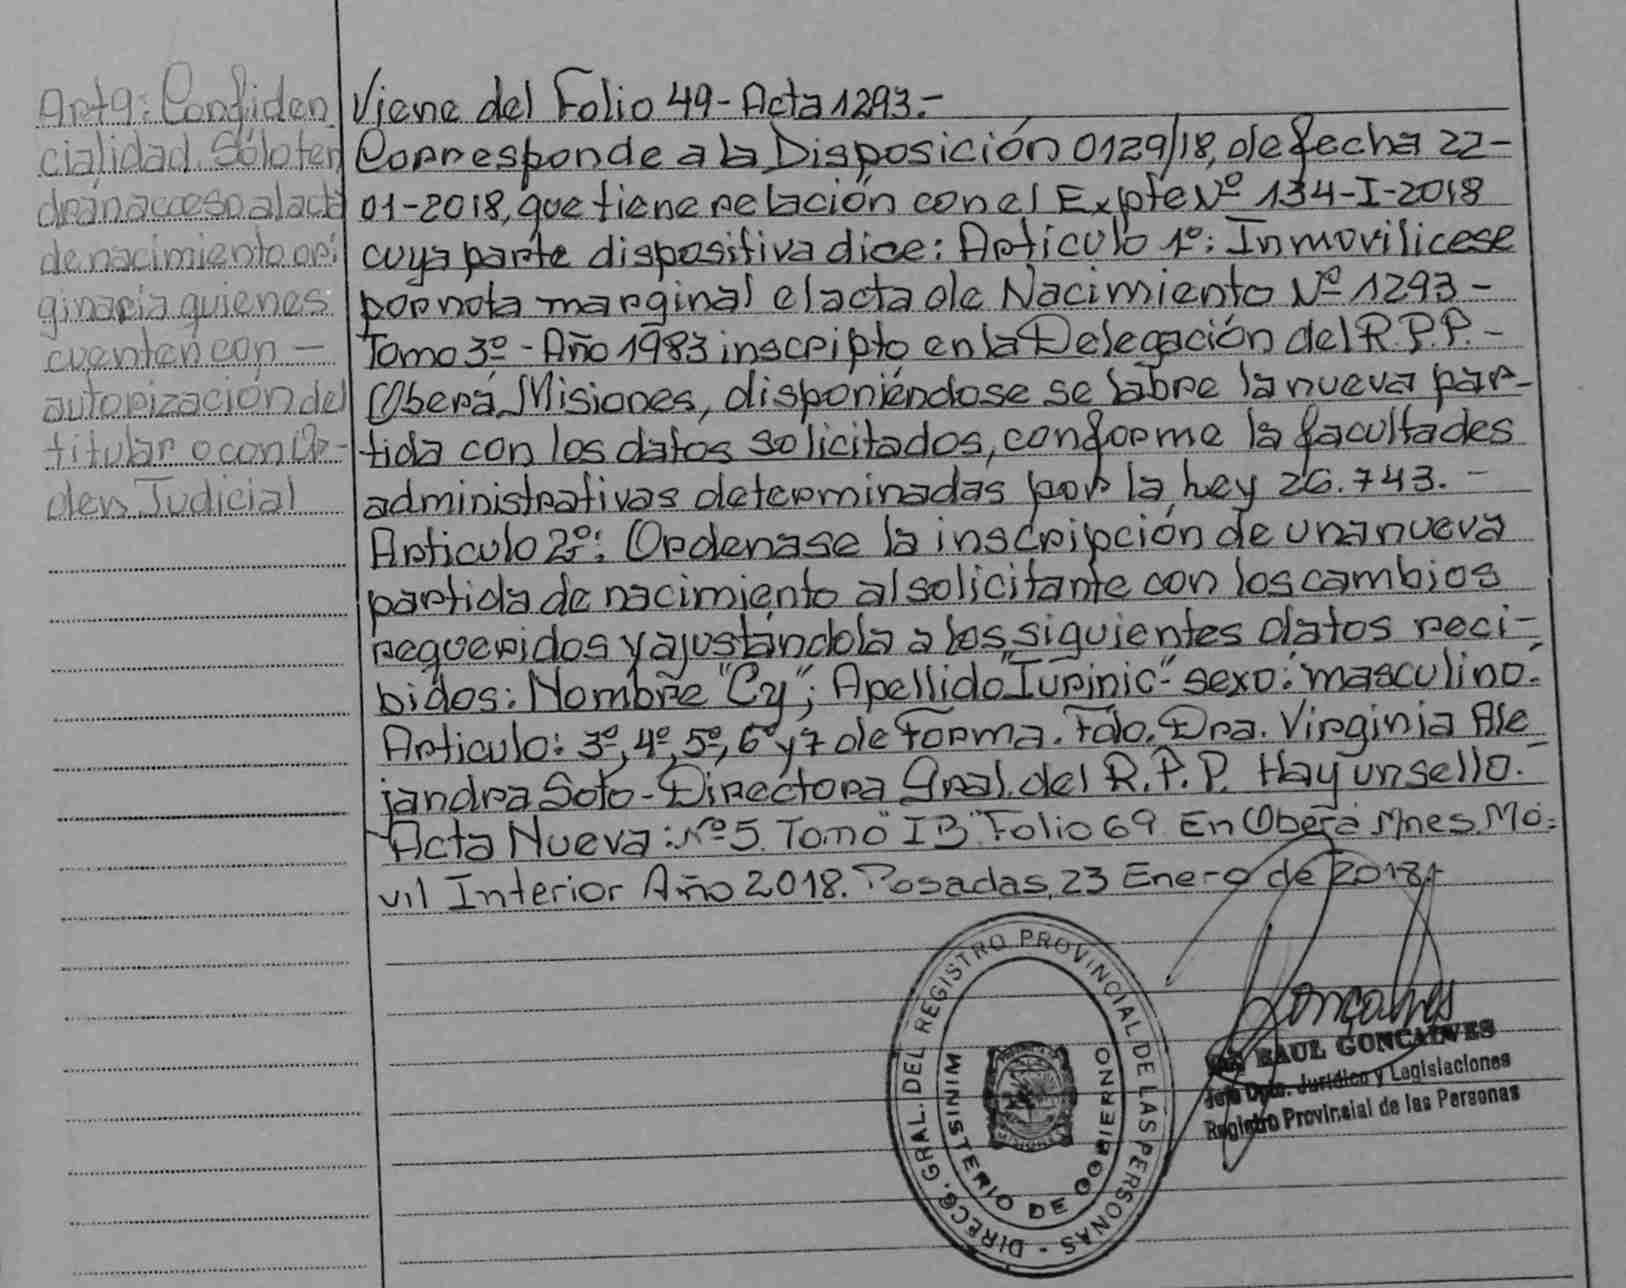 Art 9: Confiden
cialidad. Sólo ten
drán acceso al acta
de nacimiento ori
ginaria quienes
cuenten con —
autorización del
titular o con Or-
den Judicial
Viene del Folio 49 - Acta 1293.-
Corresponde a la Disposición 0129/18, de fecha 22-
01-2018, que tiene relación con el Expte Nº 134-I-2018
cuya parte dispositiva dice: Articulo 1º: Inmovilicese
por nota marginal el acta de Nacimiento Nº 1293 -
Tomo 3º - Año 1983 inscripto en la Delegación del R.P.P. -
Oberá, Misiones, disponiéndose se labre la nueva par-
tida con los datos solicitados, conforme la facultades
administrativas determinadas por la Ley 26.743. -
Articulo 2º: Ordenase la inscripción de una nueva
partida de nacimiento al solicitante con los cambios
requeridos y ajustándola a los siguientes datos reci-
bidos: Nombre "Cy"; Apellido "Iurinic" - sexo: masculino.-
Articulo: 3º, 4º, 5º, 6º y 7 de Forma. Fdo. Dra. Virginia Ale
jandra Soto - Directora Gral. del R.P.P. Hay un sello. -
Acta Nueva: Nº 5. Tomo "IB" Folio 69 En Oberá Mnes. Mó-
vil Interior Año 2018. Posadas, 23 Enero de 2018.-
DIRECC. GRAL. DEL REGISTRO PROVINCIAL DE LAS PERSONAS -
MINISTERIO DE GOBIERNO
MISIONES
Goncalves
RAUL GONCALVES
Jefe Dpto. Jurídico y Legislaciones
Registro Provincial de las Personas